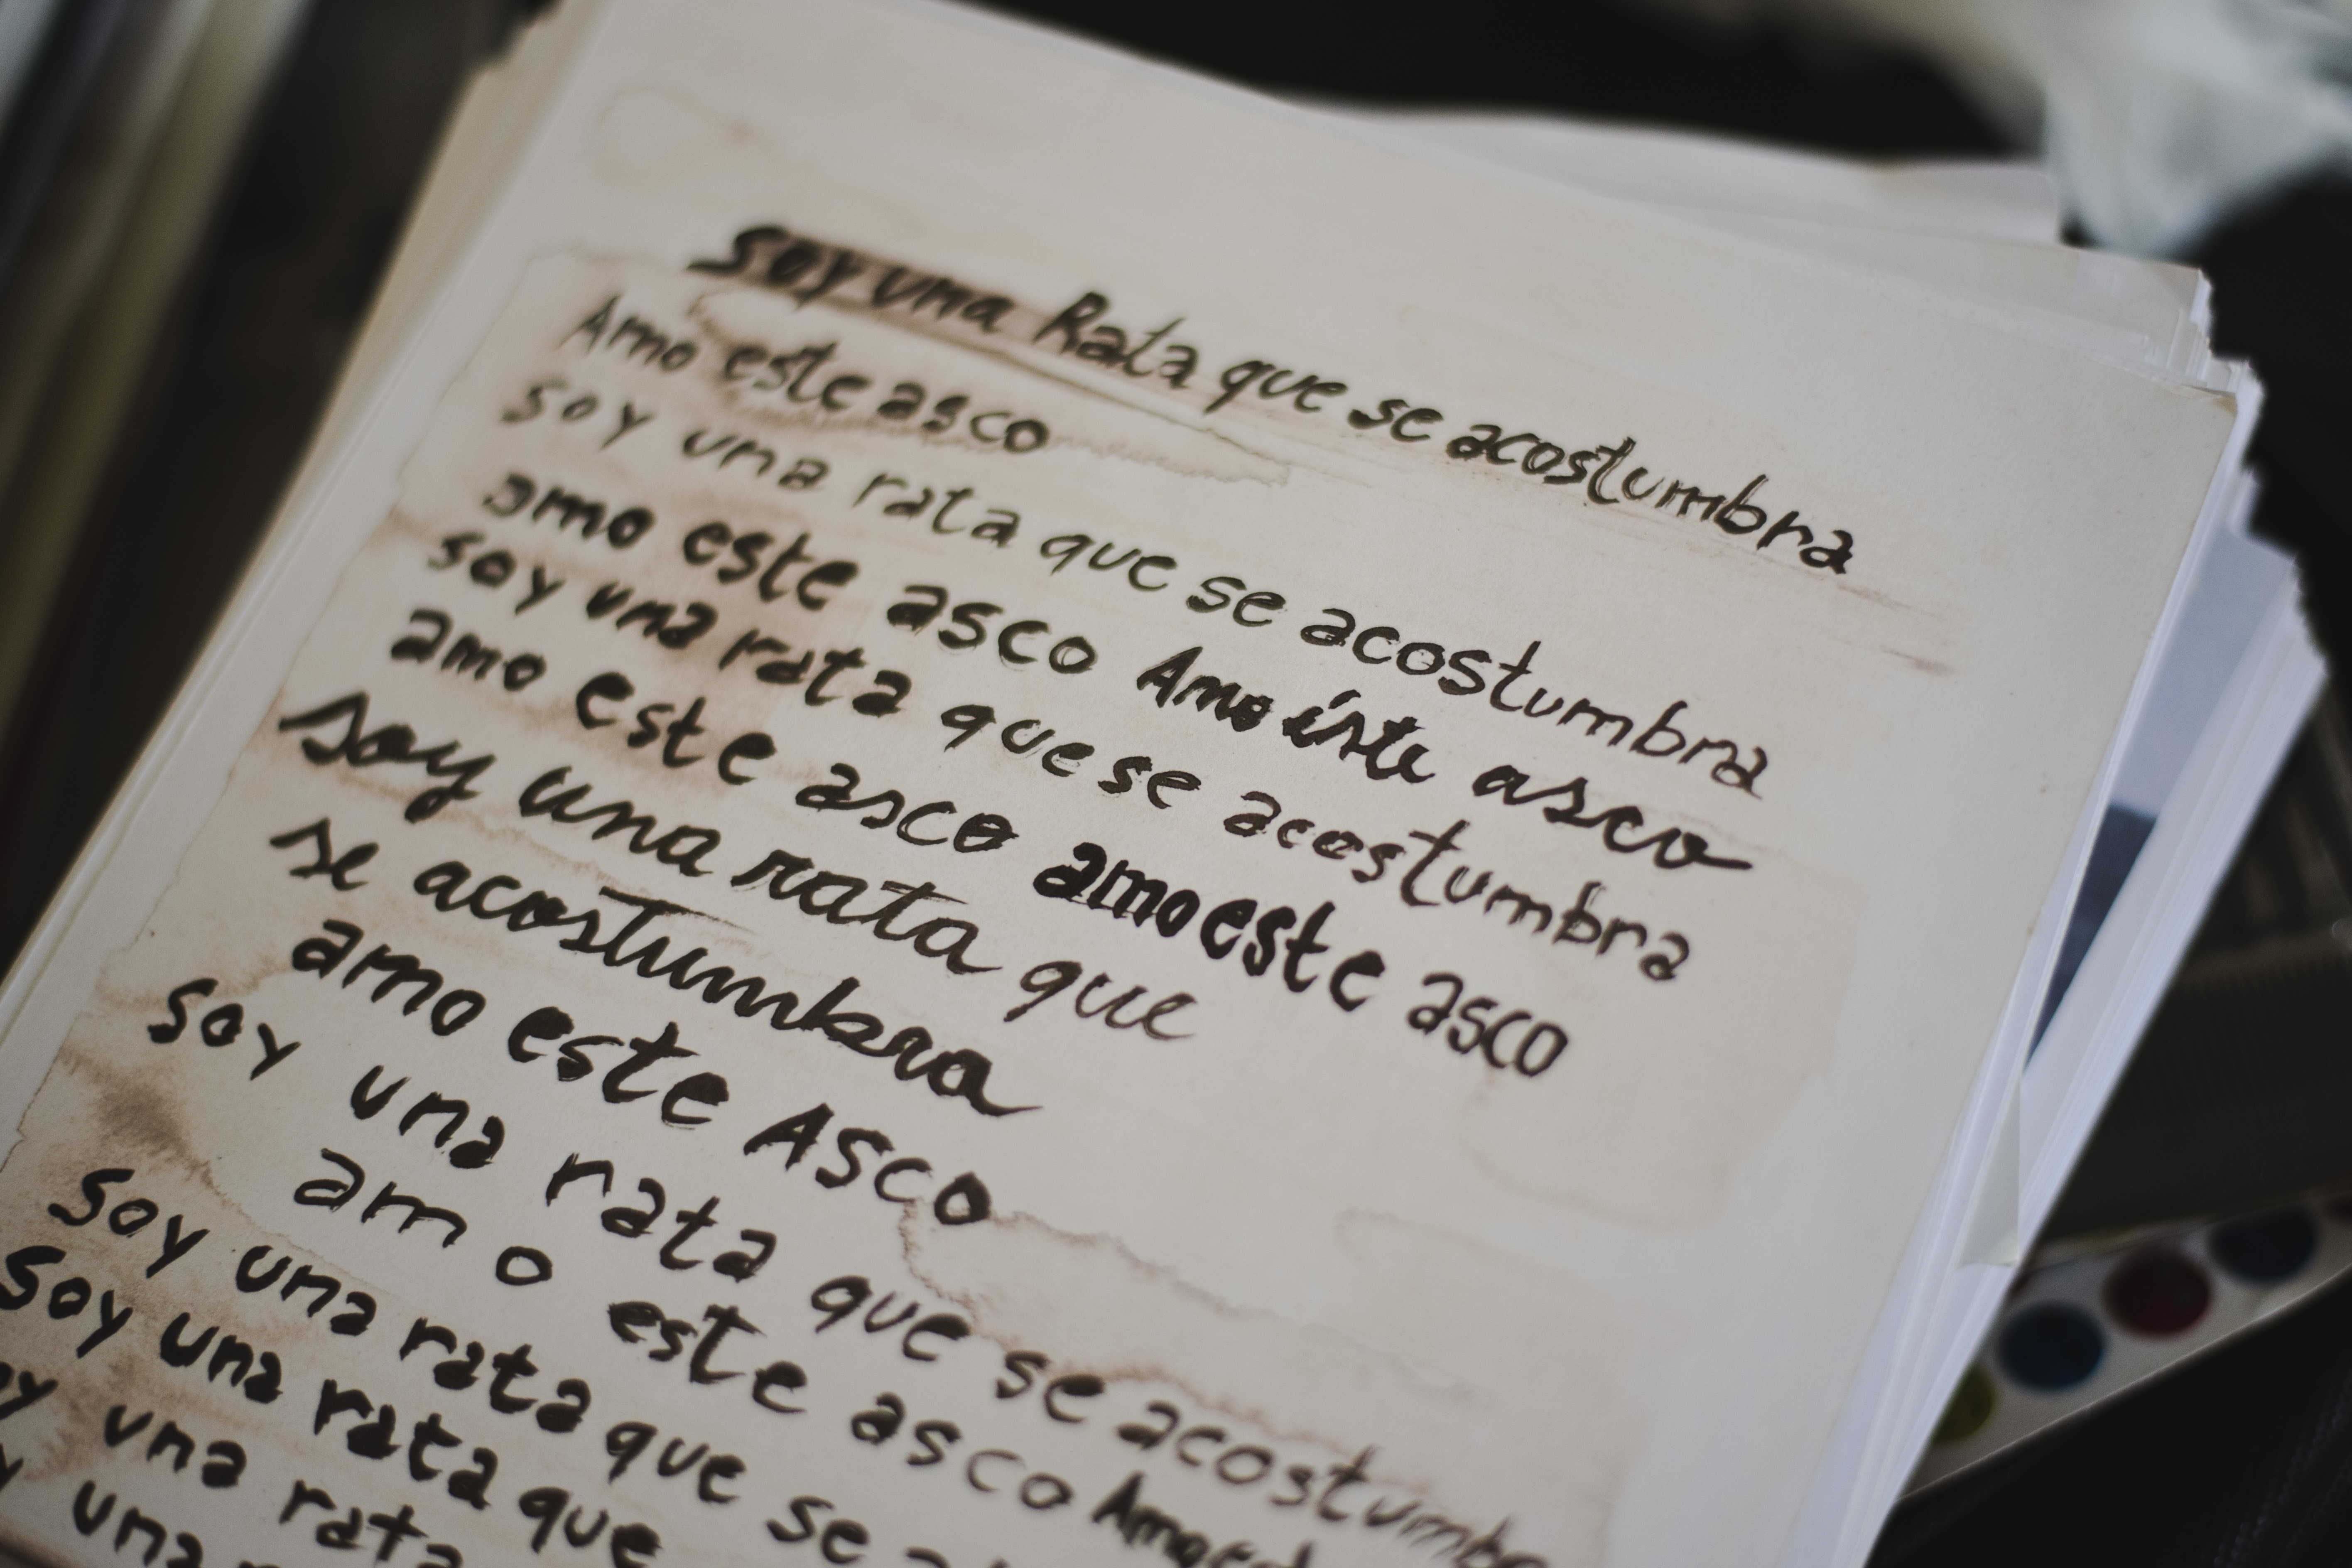 soy una Rata que se acostumbra
Amo este asco
soy una rata que se acostumbra
amo este asco Amo este asco
soy una rata que se acostumbra
amo este asco amo este asco
soy una rata que
se acostumbra
amo este ASCO
soy una rata que se acostumbra
amo este asco Amo
soy una rata que se
soy una rata que
una rata
una